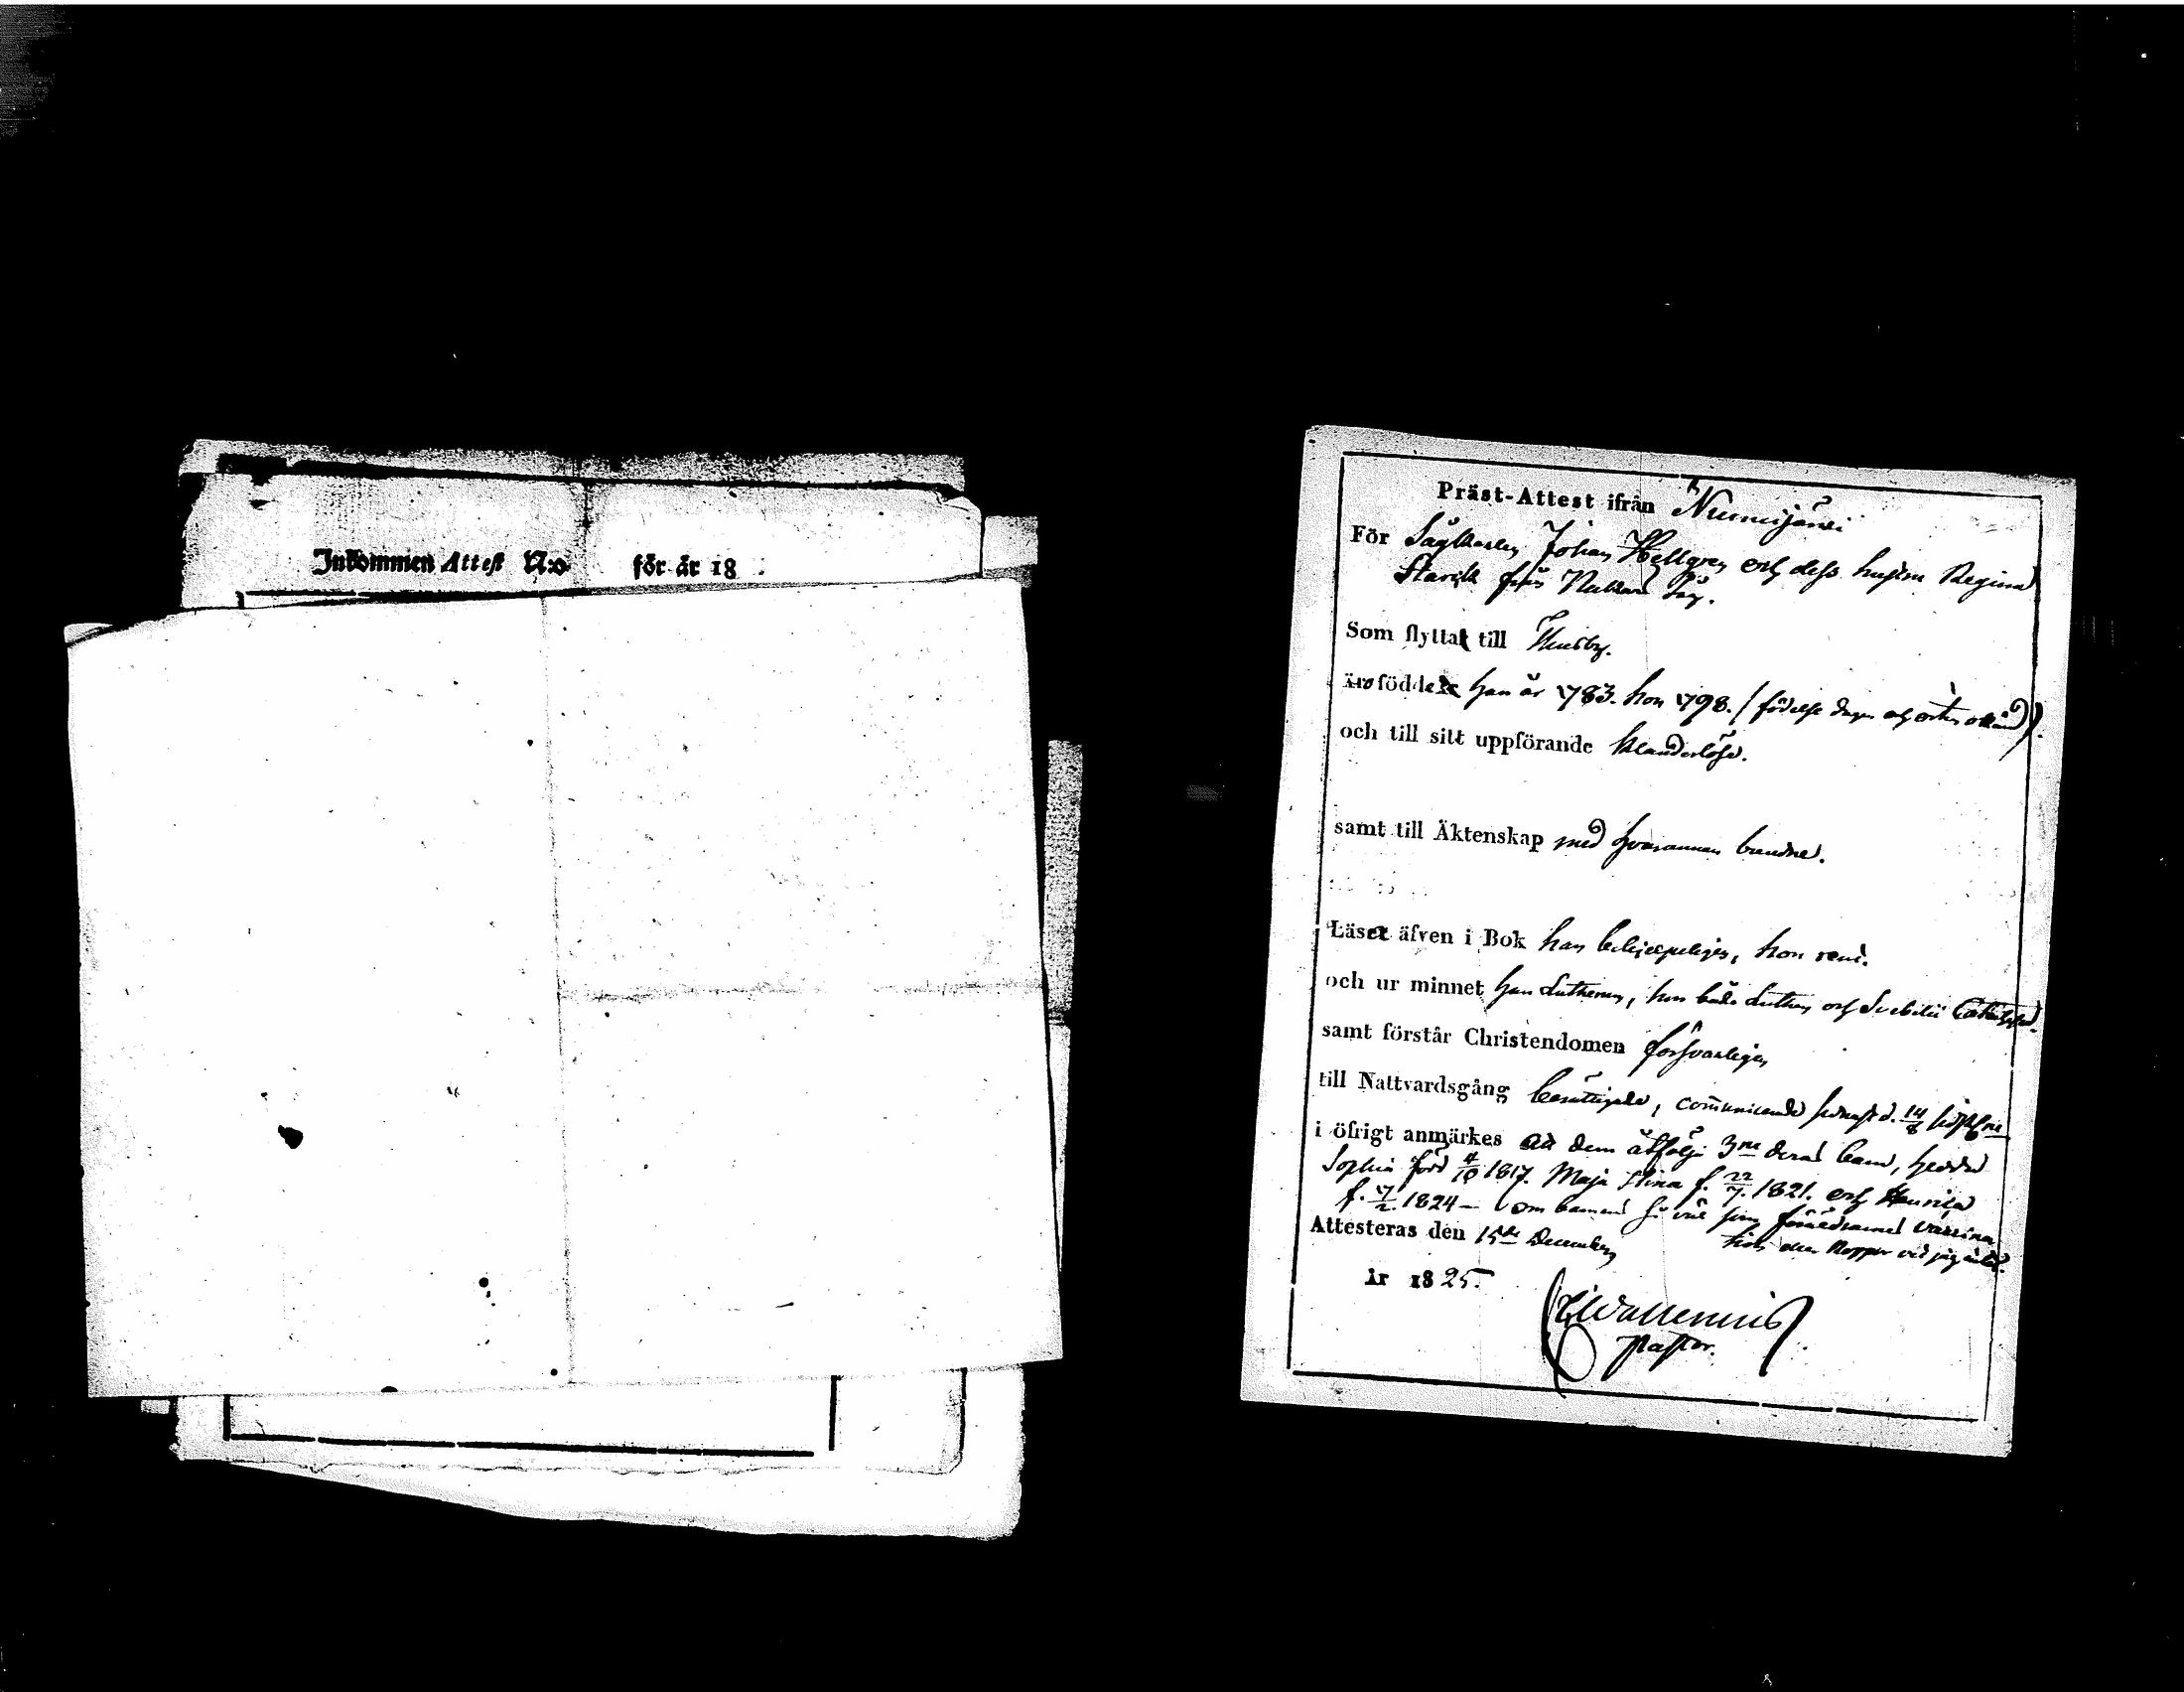 Inkommen Attest N:o för år 18
Präst-Attest ifrån Nummijärvi
För Sågkarlen Johan Hellgren och dess hustru Regina
Starck från Nukari Såg.
Som flyttat till Husby.
äro födde han år 1783. hon 1798. (födelse dagen och orten okänd).
och till sitt uppförande klanderlöse.
samt till Äktenskap med hvarannan bundne.
Läser äfven i Bok han behjelpeligen, hon rent.
och ur minnet han Lutheri, hon både Lutheri och Svebilii Catechised.
samt förstår Christendomen försvarligen
till Nattvardsgång berättigade, communicerade senast d. 14/8 sidstl.
i öfrigt anmärkes att dem åtfölja 3ne deras barn, Hedda
Sophia född 4/10 1817. Maja Stina f. 22/7. 1821. och Henrica
f. 7/2. 1824 — om barnens så väl som föräldrarnes vaccina
tion eller koppor vet jag intet.
Attesteras den 15de December
år 1825.
Wallenius
Pastor.